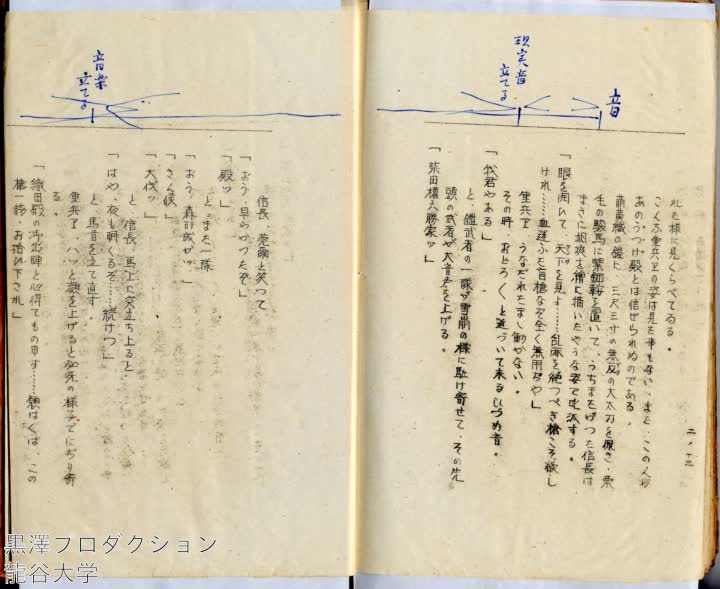 音
現実音
立てる
二ノ十三
れた様に見くらべてゐる。
こんな重兵ヱの姿は見た事もない、また、このんが
あのうつけ殿とは信ぜられぬのである。
萌黄織の鎧に、三尺三寸の無反の大太刀を佩き、栗
毛の駿馬に紫鞍を置いて、うちまたがつた信長は
まさに颯爽を繪に描いたやうな姿で叱咤する。
「眼を開いて、天下を見よ……乱麻を絶つべき槍こそ欲し
けれ……血迷ふた盲槍など全く無用ぢや」
重兵ヱ、うなだれたまゝ動かない。
その時、おどろ〱と近づいて来るひづめ音。
「我君やある」
と、鎧武者の一隊が雪崩の様に駈け寄せて、その先
頭の武者が大音声を上げる。
「柴田權六勝家ッ」
音楽
立てる
信長、莞爾と笑つて
「おう、早やかつたぞ」
「殿ッ」
と、また一隊
「おう、森三左か！」
「さん候」
「大伐ッ」
と、信長、馬上に突立ち上ると
「はや、夜も明くるぞ……続けつ」
と、馬首を立て直す。
重兵ヱ、ハッと顔を上げると必死の様子でにぢり寄
る。
「織田殿の御出陣と心得てもの申す……願はくば、この
槍一筋、お拾ひ下され」
黒澤プロダクション
龍谷大学